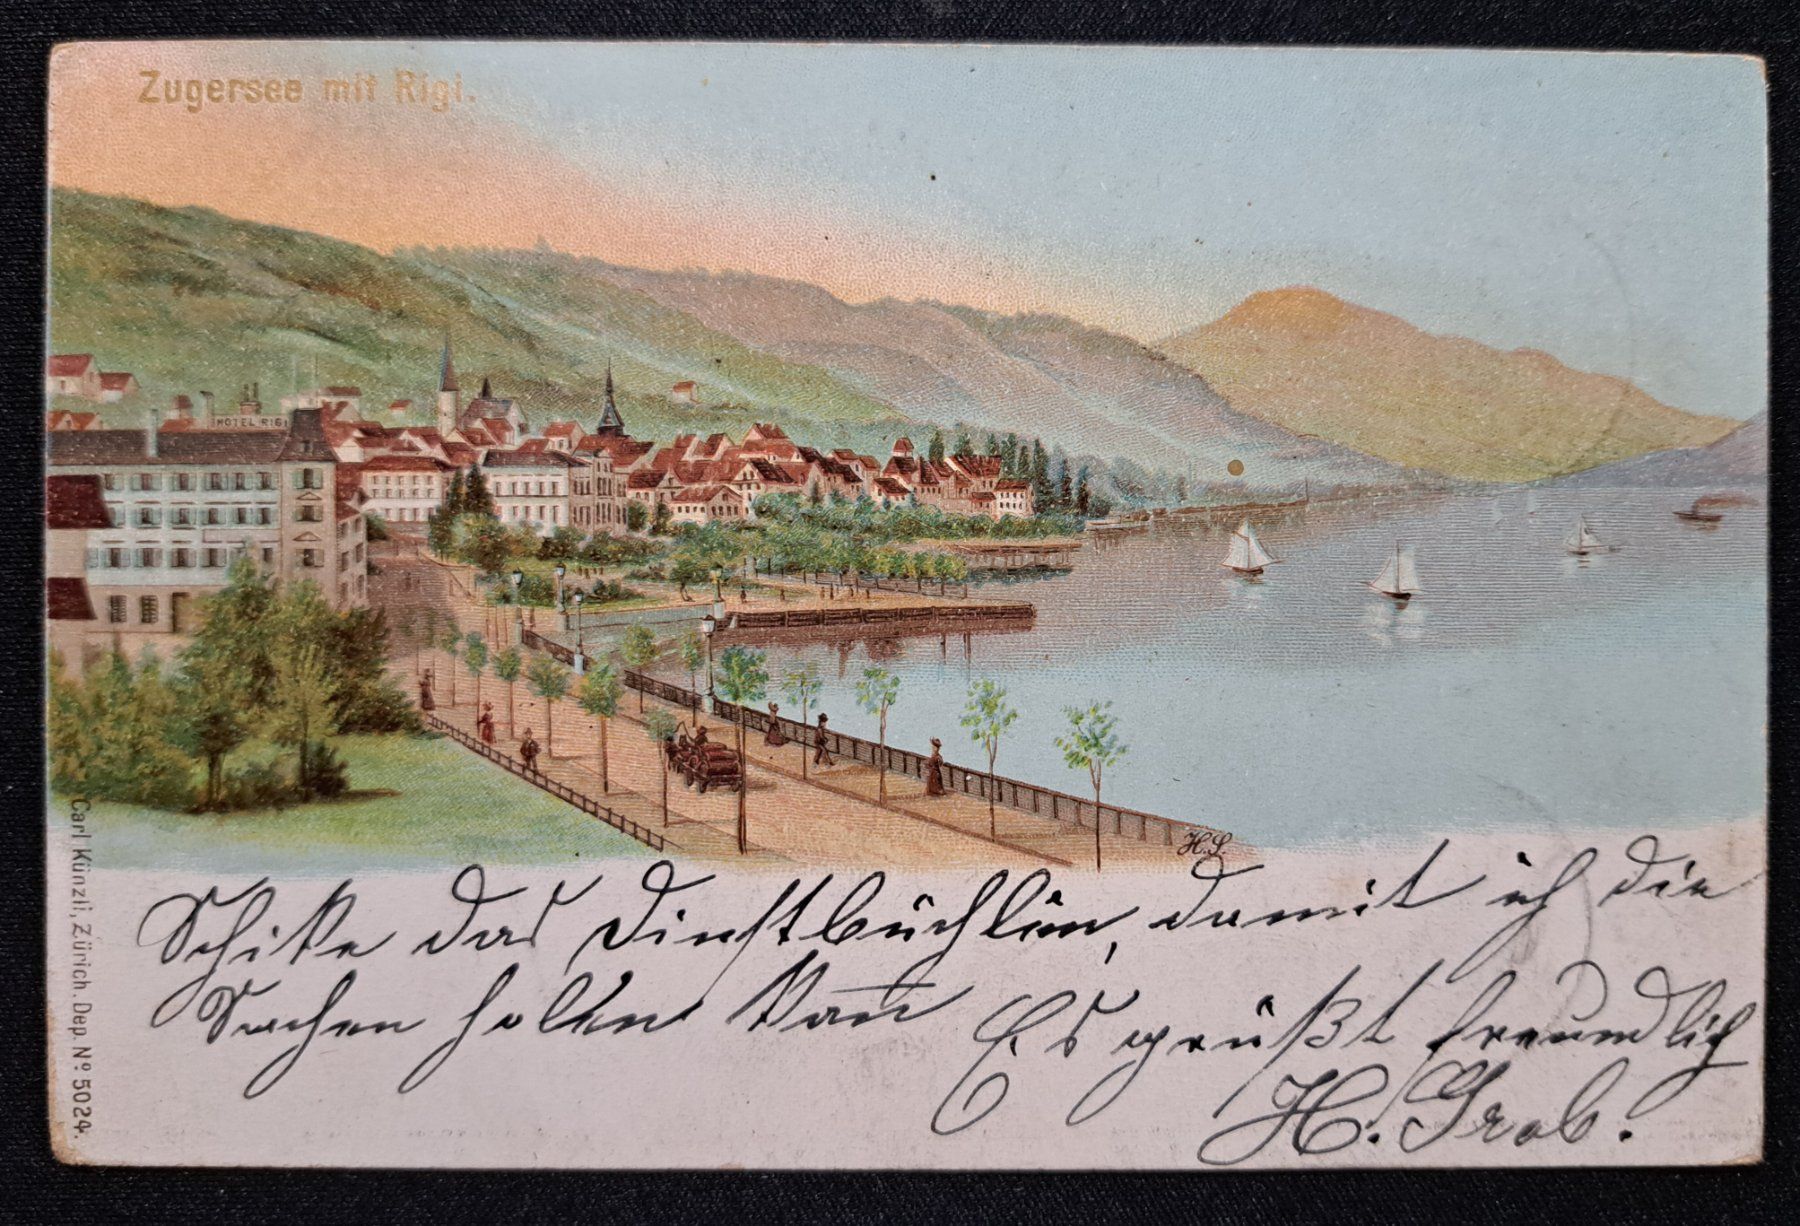 Zugersee mit Rigi.
HOTEL RIGI
H.S.
Schike das Dinstbüchlein, damit ich die
Sachen holen kan
Es grüßt freundlich
H. Grob.
Carl Künzli, Zürich. Dep. No 5024.